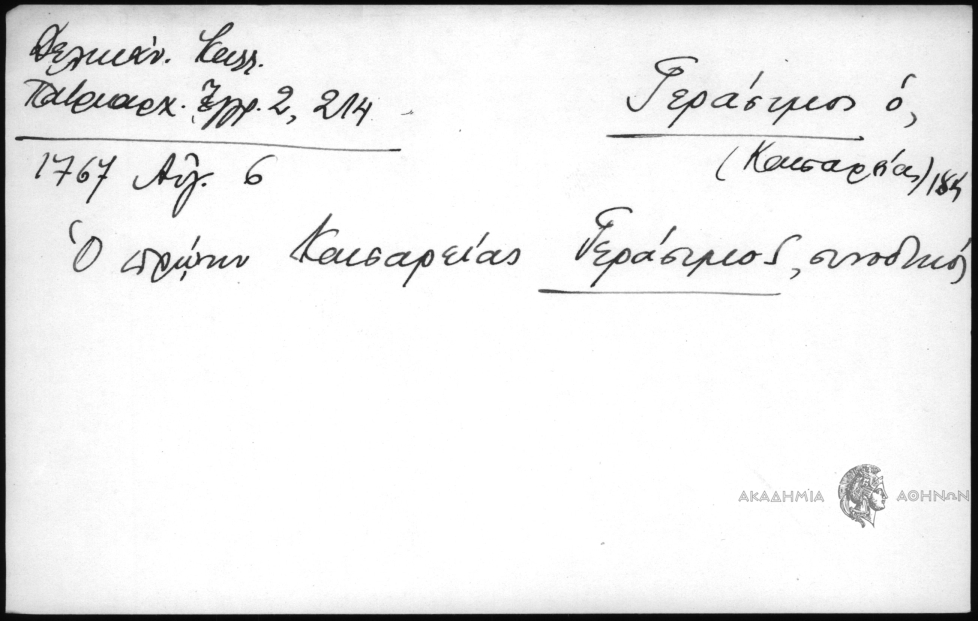 Δελικάν. Καλλ.
Πατριαρχ. Ἔγγρ. 2, 214
Γεράσιμος ὁ,
(Καισαρείας)
1767 Αὔγ. 6
Ὁ πρώην Καισαρείας Γεράσιμος, συνοδικός
ΑΚΑΔΗΜΙΑ ΑΘΗΝΩΝ